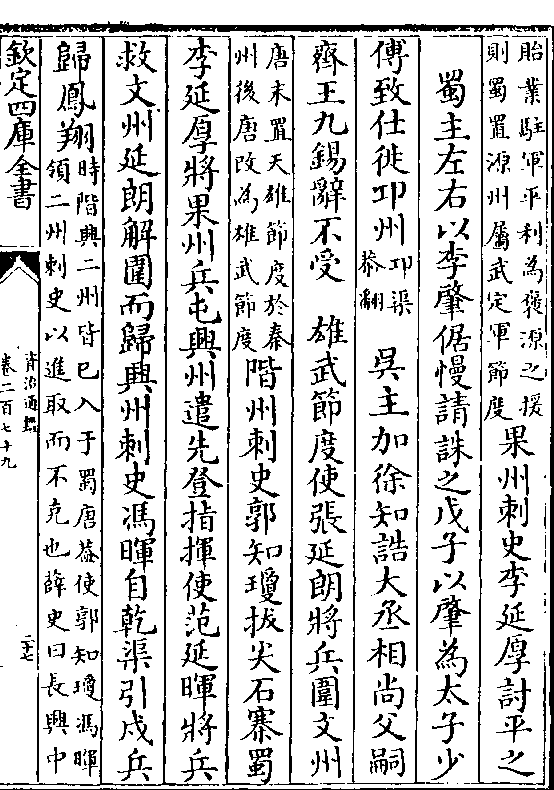 胎業駐軍平利為褒源之援
則蜀置源州屬武定軍節度
果州刺史李延厚討平之
蜀主左右以李肇倨慢請誅之戊子以肇為太子少
傅致仕徙卭州
卭渠
恭翻
吳主加徐知誥大丞相尚父嗣
齊王九錫辭不受　雄武節度使張延朗將兵圍文州
唐末置天雄節度於秦
州後唐改為雄武節度
階州刺史郭知瓊拔尖石寨蜀
李延厚將果州兵屯興州遣先登指揮使范延暉將兵
救文州延朗解圍而歸興州刺史馮暉自乾渠引戍兵
歸鳳翔
時階興二州皆已入于蜀唐葢使郭知瓊馮暉
領二州刺史以進取而不克也薛史曰長興中
欽定四庫全書
資治通鑑
卷二百七十九
二十七